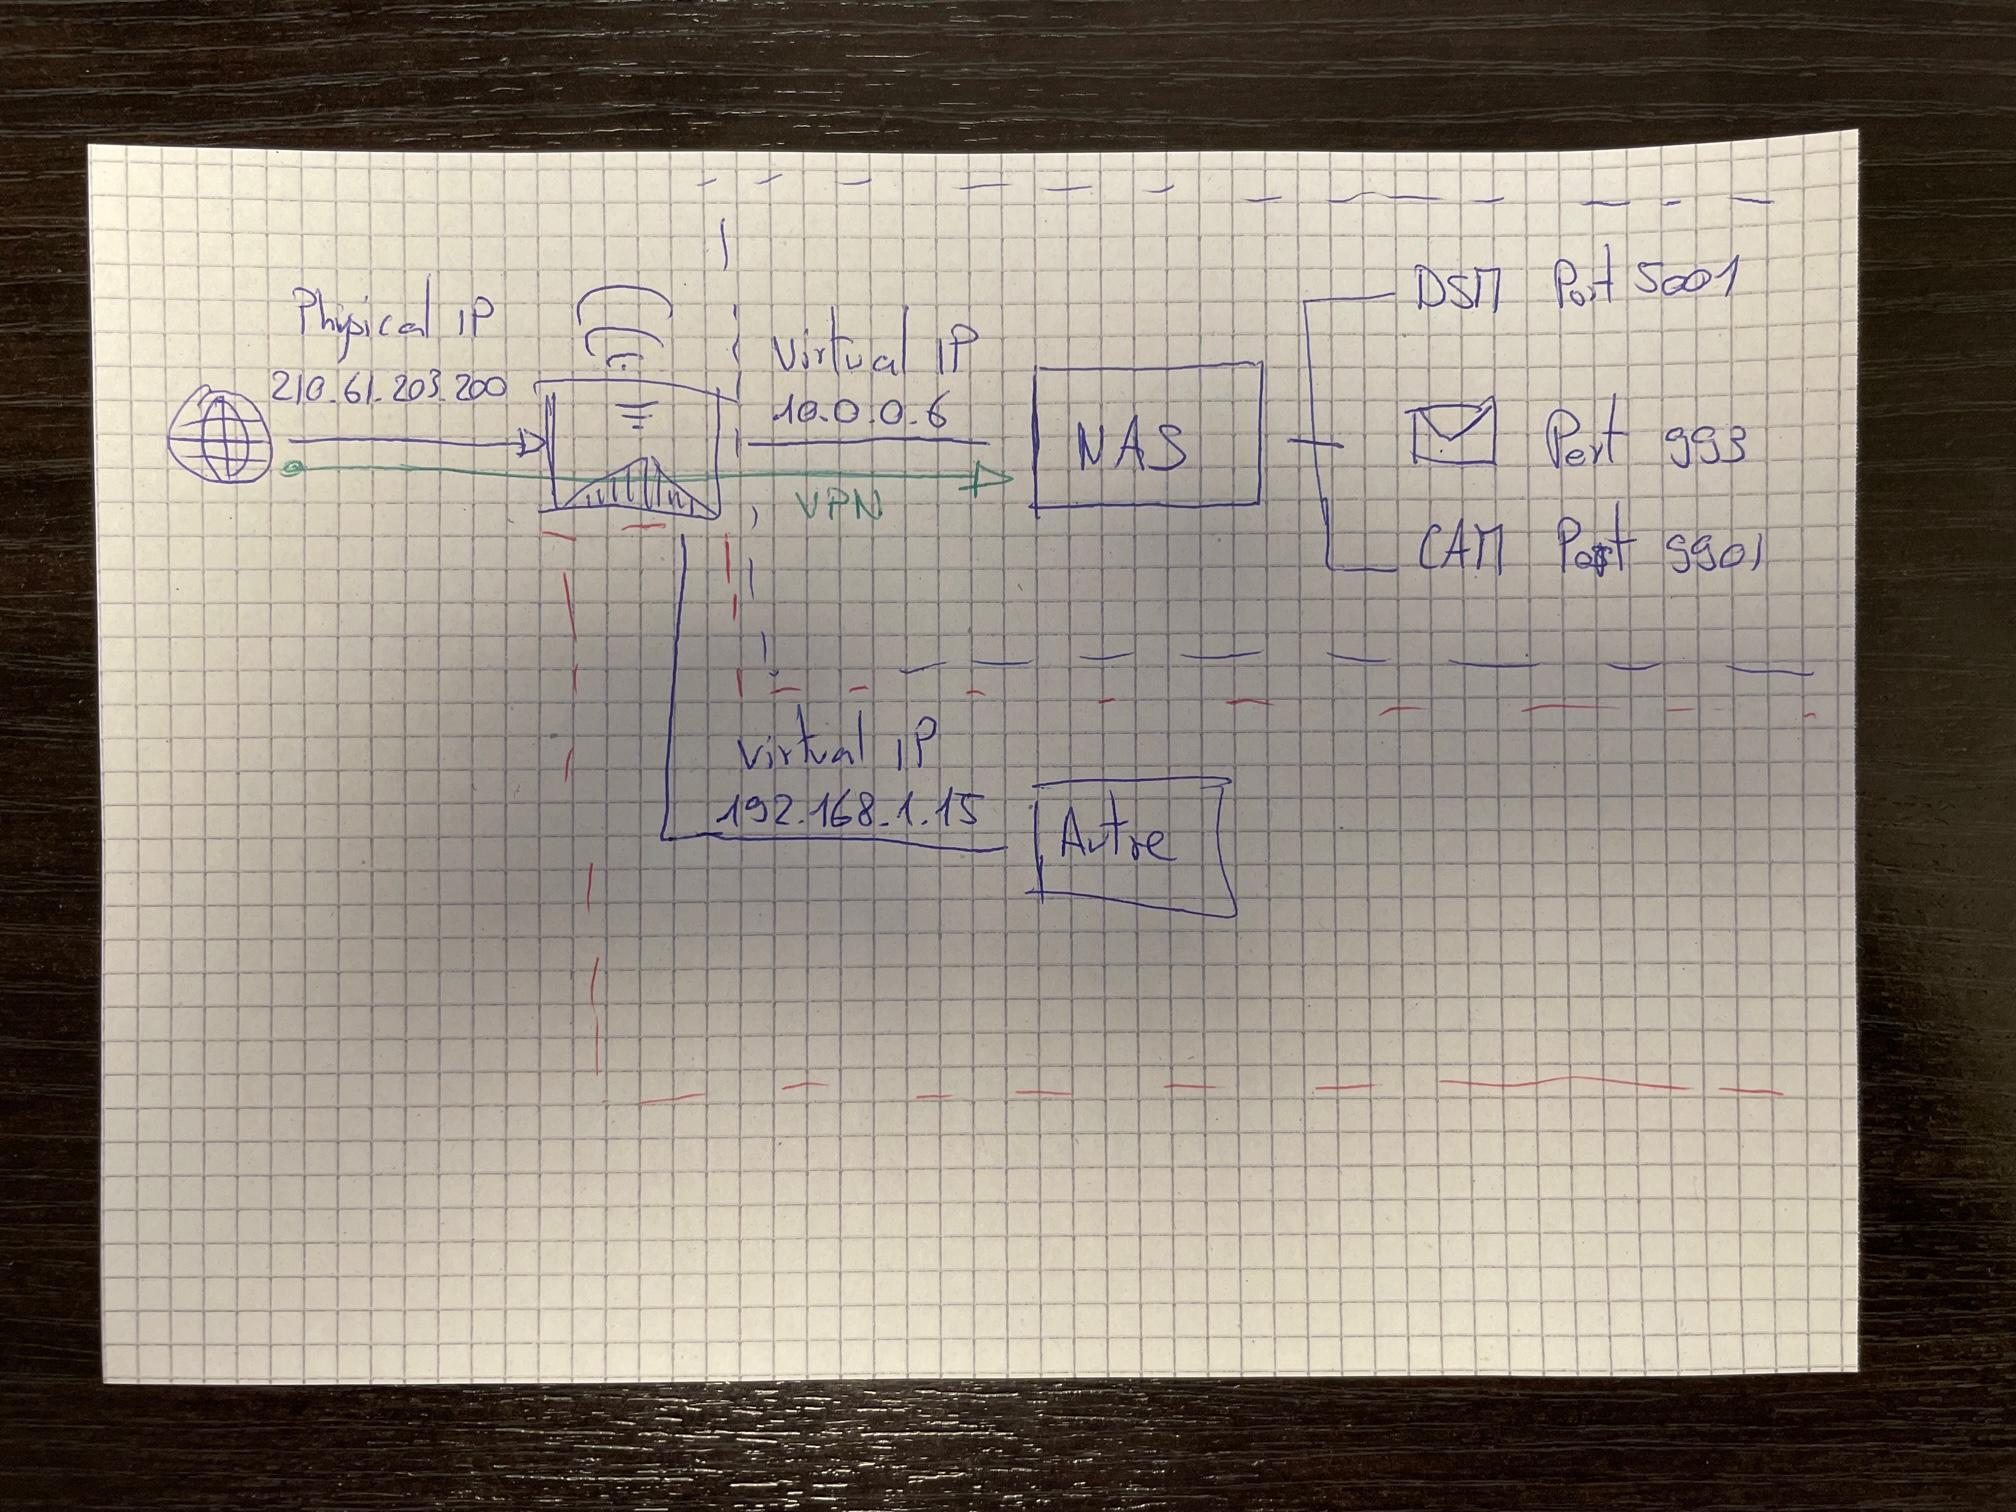 Physical IP
210.61.203.200
Virtual IP
10.0.0.6
VPN
NAS
DSM Port 5001
Port 993
CAM Port 9901
Virtual IP
192.168.1.15
Autre